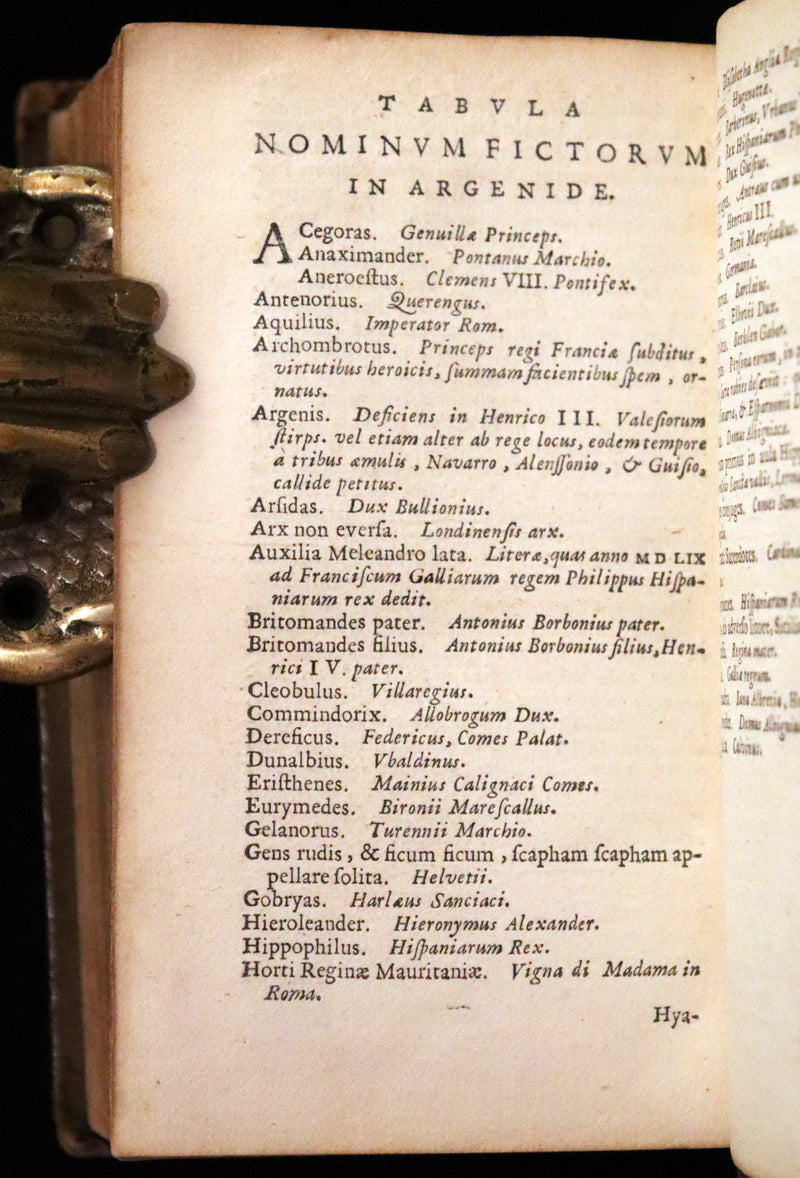 TABVLA
NOMINVM FICTORVM
IN ARGENIDE.
ACegoras. Genuillæ Princeps.
Anaximander. Pontanus Marchio.
Aneroeſtus. Clemens VIII. Pontifex.
Antenorius. Querengus.
Aquilius. Imperator Rom.
Archombrotus. Princeps regi Franciæ ſubditus,
virtutibus heroicis, ſummam facientibus ſpem, or-
natus.
Argenis. Deficiens in Henrico III. Valeſiorum
ſtirps. vel etiam alter ab rege locus, eodem tempore
à tribus æmulis, Navarro, Alenſſonio, & Guiſio,
callide petitus.
Arſidas. Dux Bullionius.
Arx non everſa. Londinenſis arx.
Auxilia Meleandro lata. Literæ, quas anno MDLIX
ad Franciſcum Galliarum regem Philippus Hiſpa-
niarum rex dedit.
Britomandes pater. Antonius Borbonius pater.
Britomandes filius. Antonius Borbonius filius, Hen-
rici IV. pater.
Cleobulus. Villaregius.
Commindorix. Allobrogum Dux.
Dereficus. Federicus, Comes Palat.
Dunalbius. Vbaldinus.
Eriſthenes. Mainius Calignaci Comes.
Eurymedes. Bironii Mareſcallus.
Gelanorus. Turennii Marchio.
Gens rudis, & ficum ficum, ſcapham ſcapham ap-
pellare ſolita. Helvetii.
Gobryas. Harlæus Sanciaci.
Hieroleander. Hieronymus Alexander.
Hippophilus. Hiſpaniarum Rex.
Horti Reginæ Mauritaniæ. Vigna di Madama in
Roma.
Hya-
Hugenottæ.
Dux Guiſius.
Henricus III.
Germania.